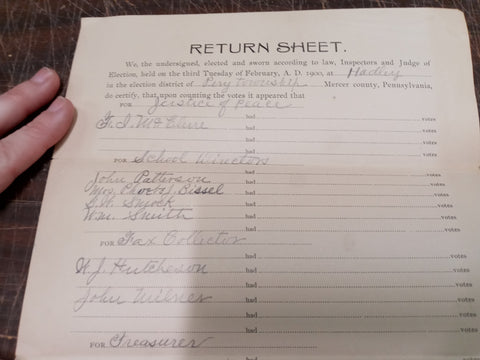 RETURN SHEET.
We, the undersigned, elected and sworn according to law, Inspectors and Judge of
Election, held on the third Tuesday of February, A. D. 1900, at Hadley
in the election district of Perry Township Mercer county, Pennsylvania,
do certify, that upon counting the votes it appeared that
FOR Justice of Peace
had votes
F. I. McClure had votes
had votes
FOR School Directors had votes
John Patterson had votes
Mrs. Phoebe J. Bissel had votes
Smock had votes
Wm. Smith had votes
had votes
FOR Tax Collector
W. J. Hutcheson had votes
had votes
John Milner had votes
had votes
FOR Treasurer had votes